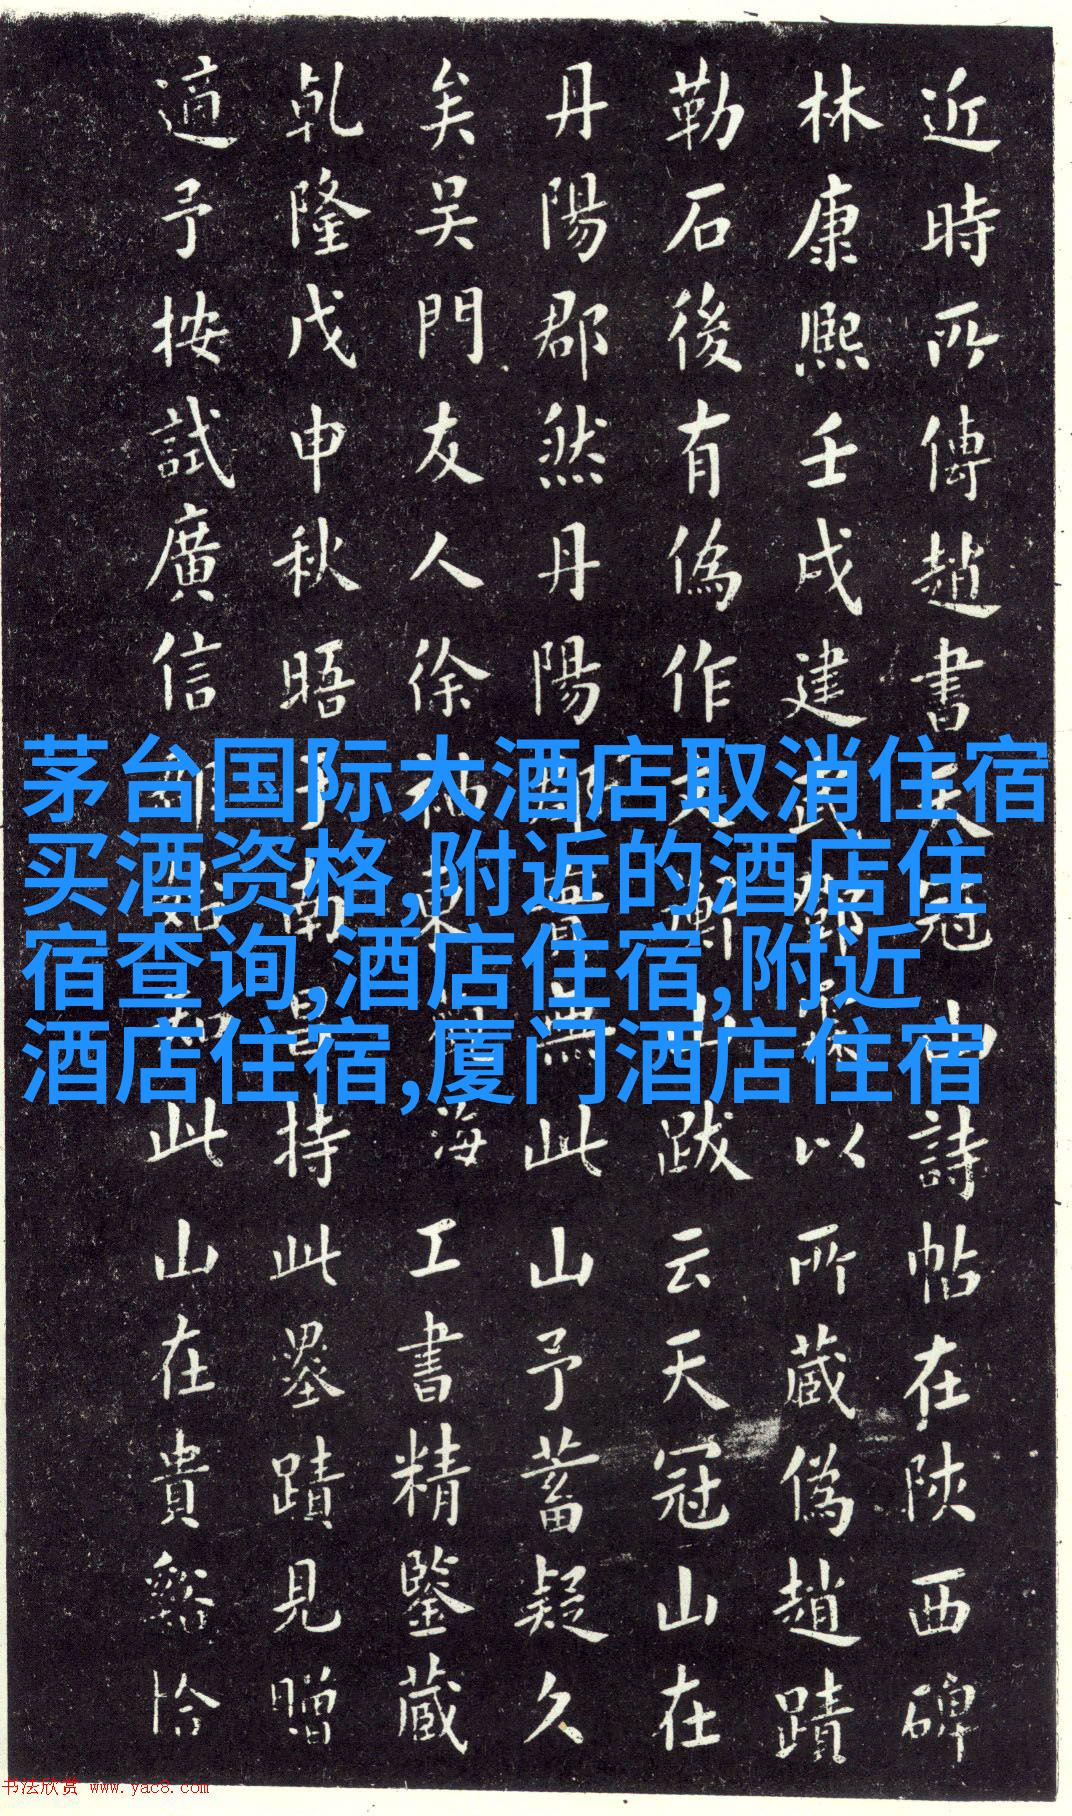 近時所傳趙書天冠山詩帖在陝西碑
林康熙壬戌建武以所藏偽趙蹟
勒石後有偽作文衡山跋云天冠山在
丹陽郡然丹陽郡實無此山予蓄疑久
矣吳門友人徐袖東海工書精鑒藏
乾隆戊申秋晤于南昌持此墨蹟見贈
適予按試廣信此山在貴谿恰
茅台国际大酒店取消住宿
买酒资格,附近的酒店住
宿查询,酒店住宿,附近
酒店住宿,厦门酒店住宿
书法欣赏 www.yac8.com